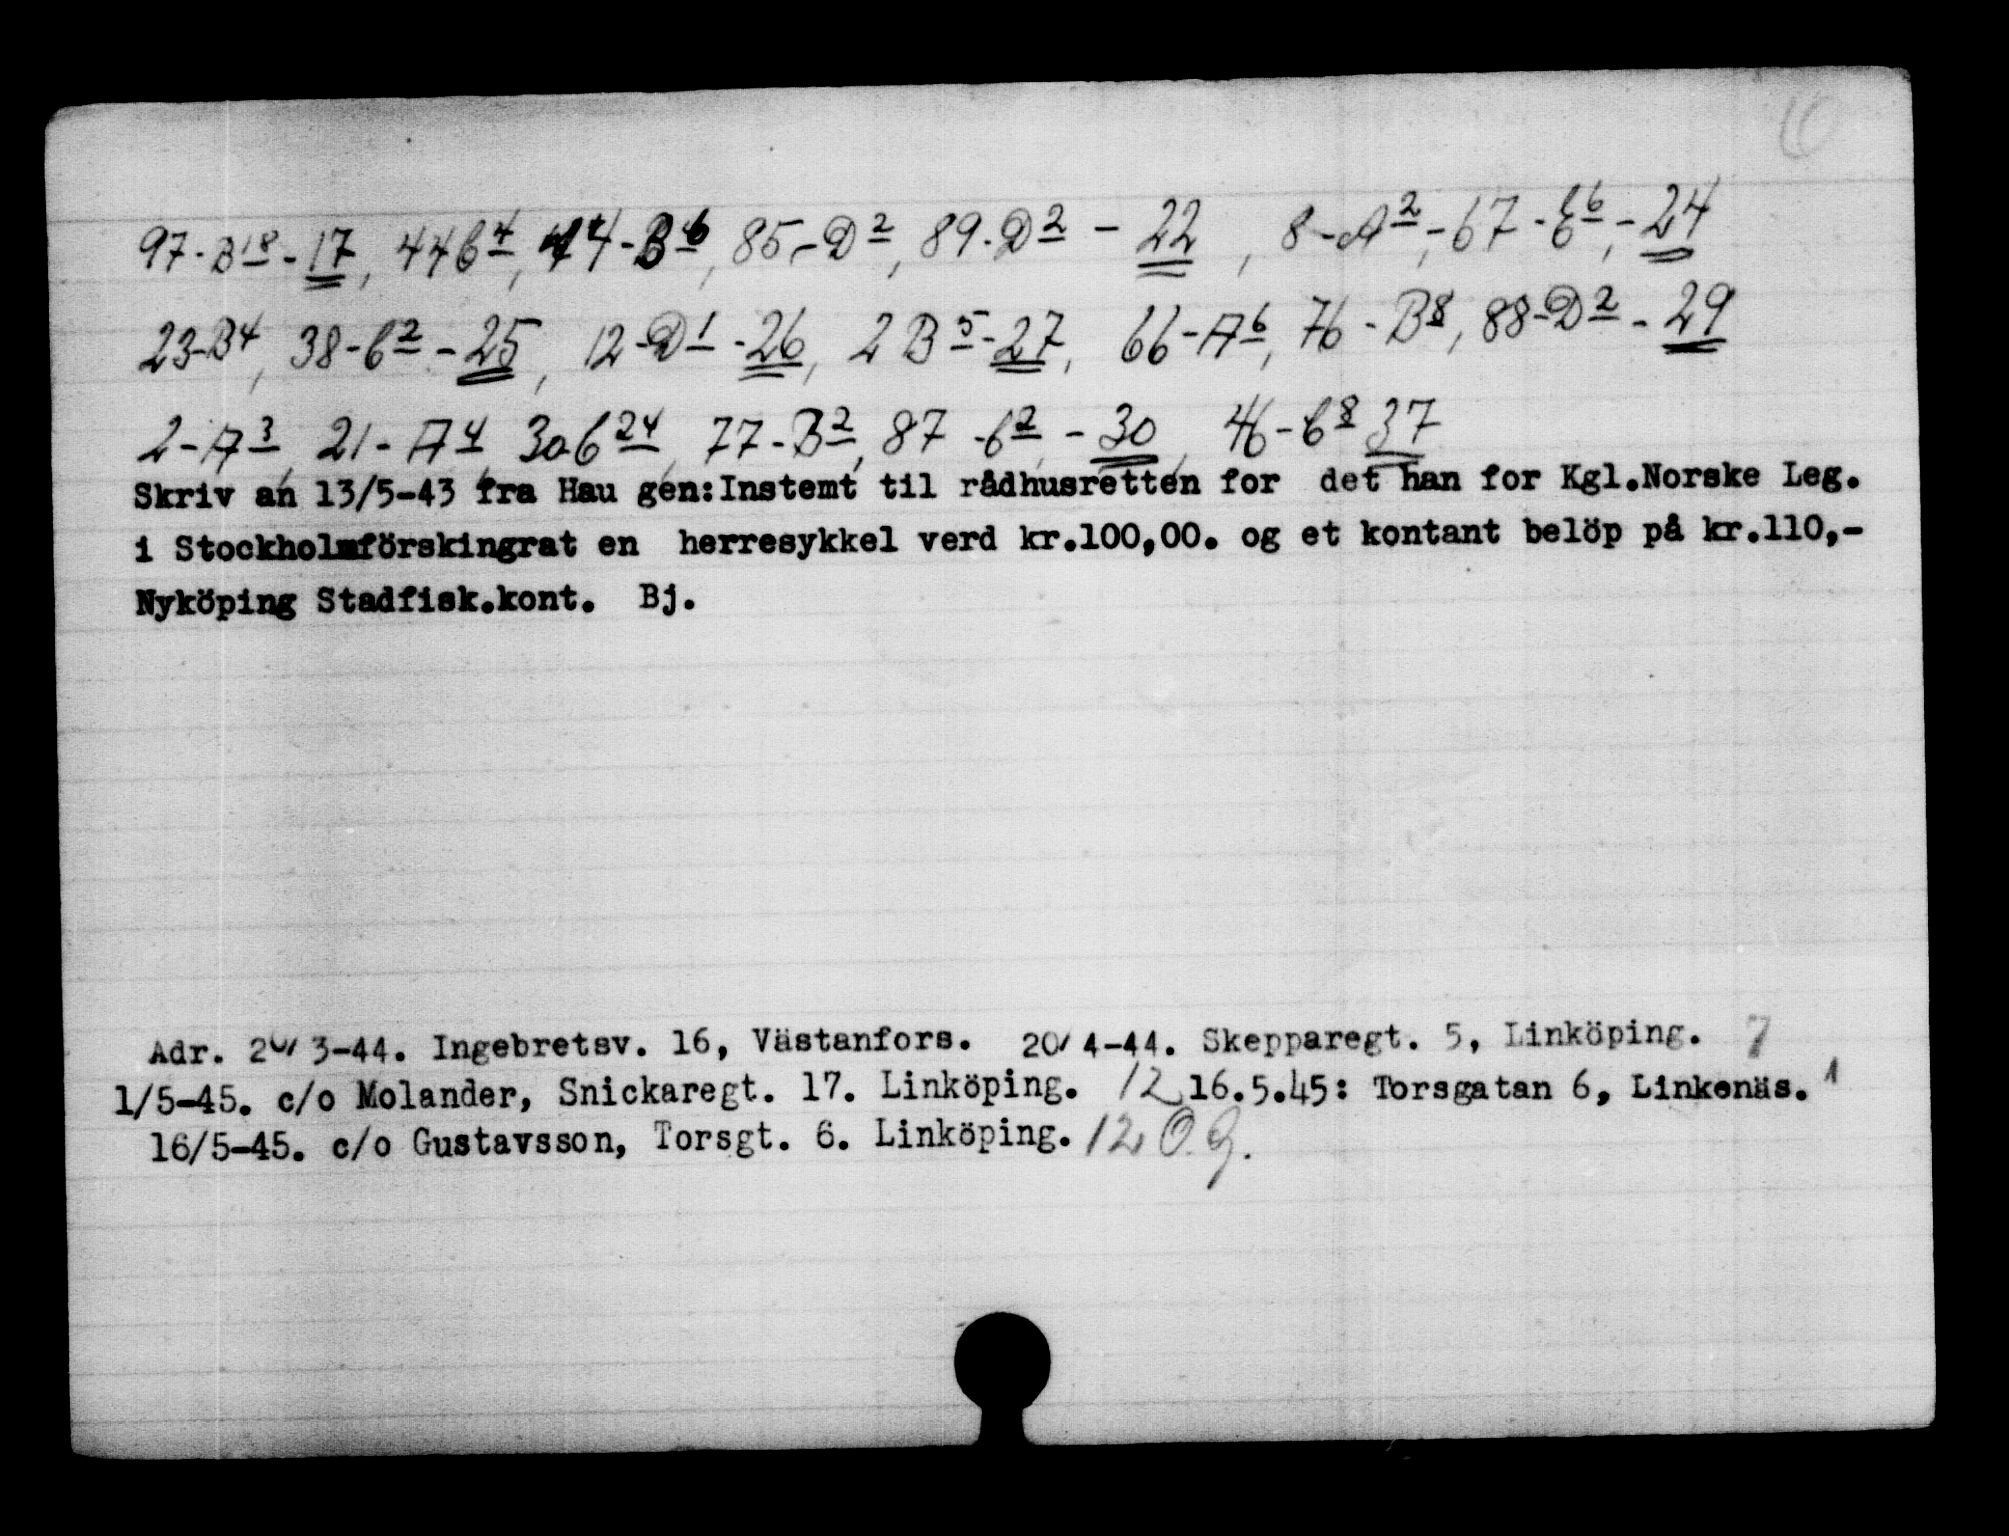 97-B18-17, 44b4, 44-B6, 85-D2, 89-D2 - 22, 8-A2,-67-E6,-24
23-B4, 38-b2-25, 12-D1-26, 2B5-27, 66-A6, 76-B8, 88-D2-29
2-A3, 21-A4, 30b24, 77-B2, 87-b2,-30, 46-b8 37
Skriv an 13/5-43 fra Hau gen:Instemt til rådhusretten for det han for Kgl.Norske Leg.
i Stockholmförskingrat en herresykkel verd kr.100,00. og et kontant belöp på kr.110,-
Nyköping Stadfisk.kont. Bj.
Adr. 20/3-44. Ingebretsv. 16, Västanfors. 20/4-44. Skepparegt. 5, Linköping. 7
1/5-45. c/o Molander, Snickaregt. 17. Linköping. 12 16.5.45: Torsgatan 6, Linkenäs. 1
16/5-45. c/o Gustavsson, Torsgt. 6. Linköping. 12 O.G.